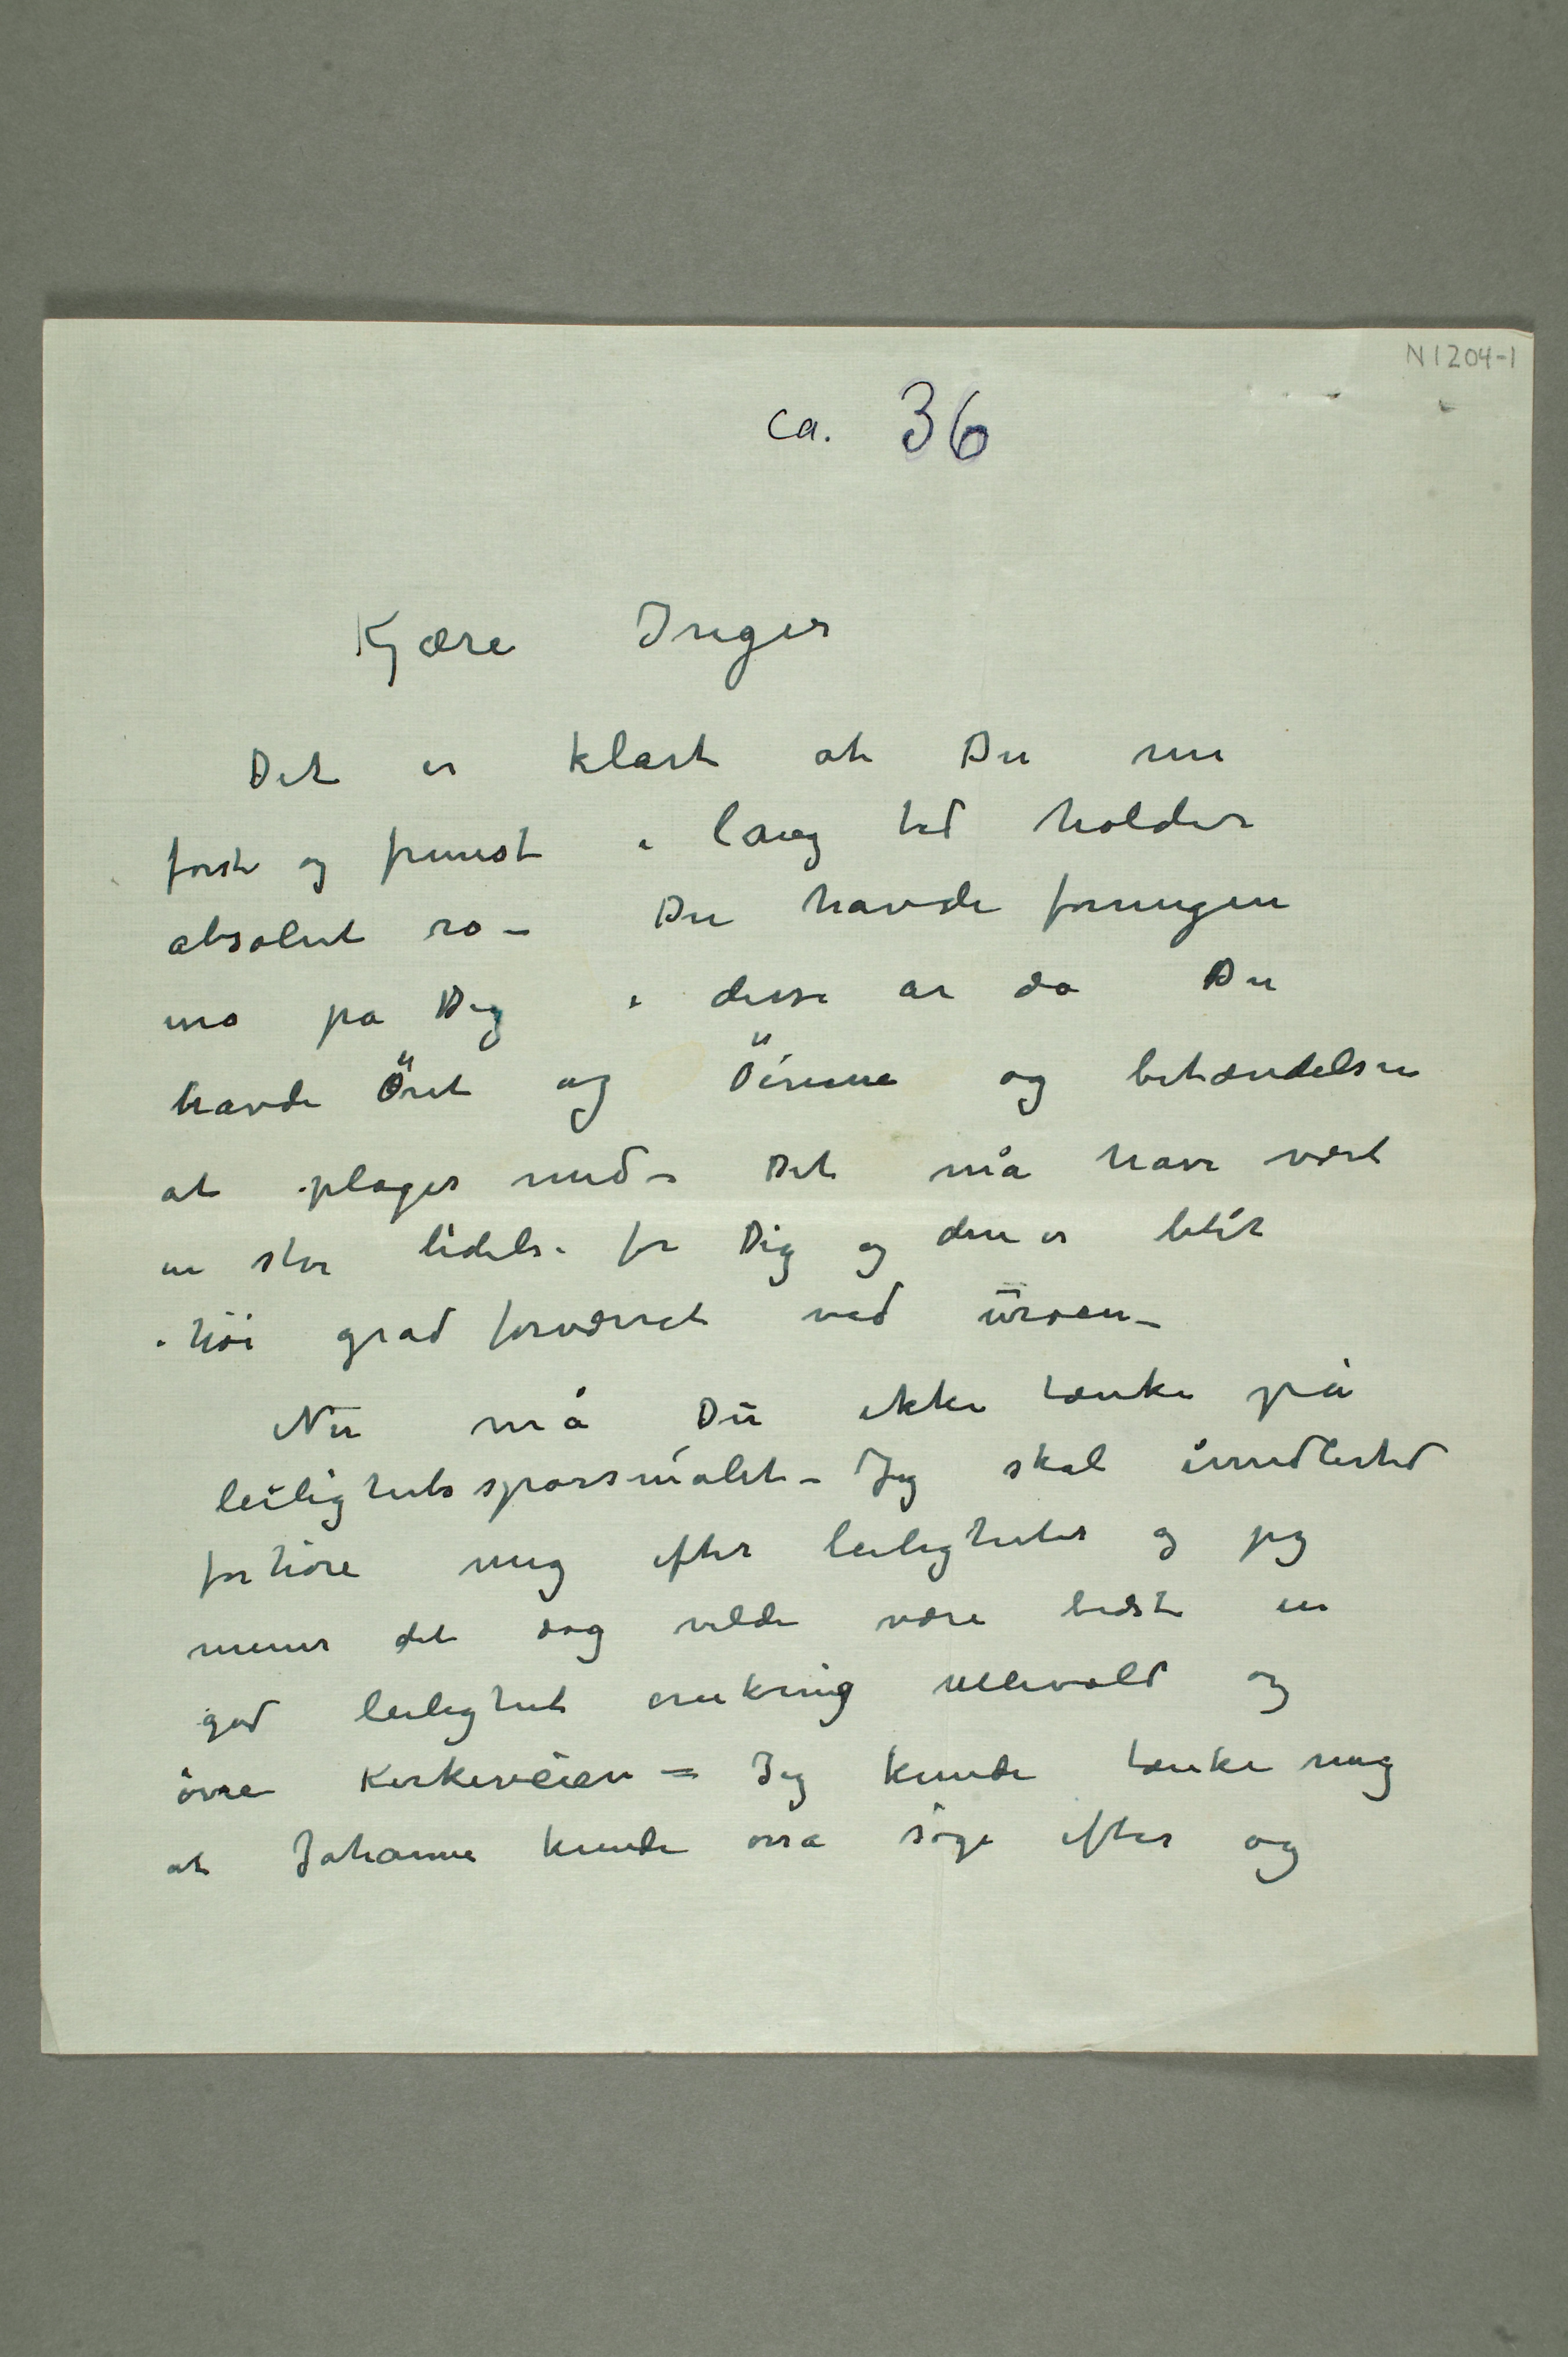 N1204-1
ca. 36
Kjære Inger
Det er klart at Du nu
først og fremst i lang tid holder
absolut ro – Du havde foruden
uro på Dig i disse år da Du
havde Öret og Öinene og betændelsen
at plages med – Det må have vært
en stor lidelse for Dig og den er blit
i höi grad forværret ved uroen –
Nu må Du ikke tænke på
leilighetsspørsmålet – Jeg skal imidlertid
forhöre mig efter leiligheter og jeg
mener det dog vilde være bedst en
god leilighet omkring Ullevold og
övre Kirkeveien = Jeg kunde tænke mig
at Johanne kunde osså söge efter og